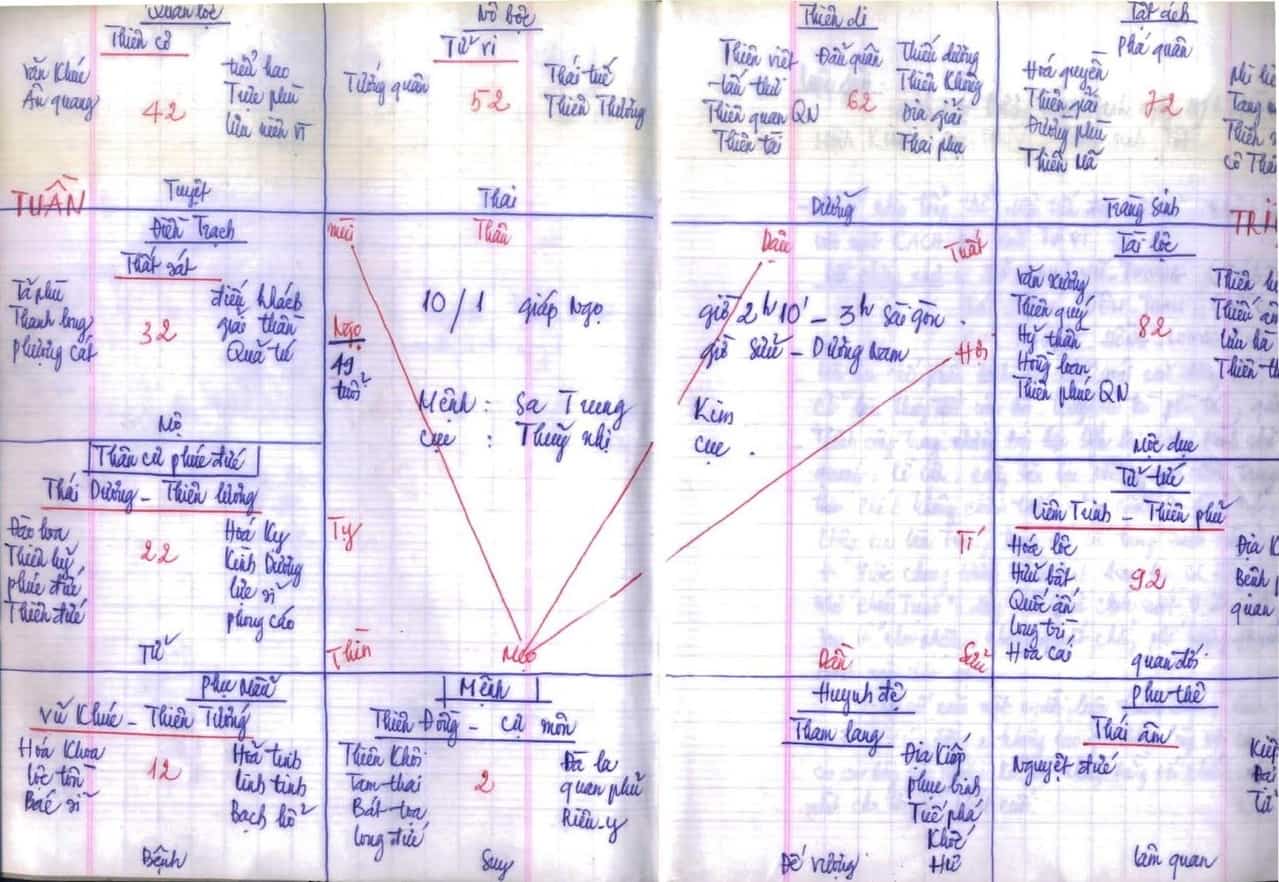 Quan lộc
Thiên cơ
Văn Khúc
Ân quang
42
tiểu hao
Trực phù
lưu niên VT
TUẦN
Tuyệt
Nô bộc
Tử vi
Tướng quân
52
Thái tuế
Thiên Thương
Thai
Thiên di
Thiên việt
tấu thư
Thiên quan QN
Thiên tài
Đẩu quân
62
Thiếu dương
Thiên Không
Địa giải
Thai phụ
Dưỡng
Tật ách
Phá quân
Hoá quyền
Thiên giải
Đường phù
Thiên mã
72
Tang
Thiên
Cô Thần
Tràng Sinh
Điền Trạch
Thất sát
Tả phù
Thanh long
Phượng các
32
điếu khách
giải thần
Quả tú
Mộ
mùi
Thân
Dậu
Tuất
Ngọ
49
tuổi
Hợi
Tỵ
Tí
Thìn
Mẹo
Dần
Sửu
10/1 giáp Ngọ
giờ 2h10' – 3h Sài gòn.
giờ Sửu – Dương Nam
Mệnh : Sa Trung Kim
cục : Thuỷ nhị cục.
Tài lộc
Văn xương
Thiên quý
Hỷ thần
Hồng loan
Thiên phúc QN
82
Thiên
Thiếu âm
lưu hà
Mộc dục
Thân cư phúc đức
Thái Dương – Thiên lương
Đào hoa
Thiên hỷ
phúc đức
Thiên đức
22
Hoá Kỵ
Kình Dương
lực sĩ
phong cáo
Tử
Tử tức
Liêm Trinh – Thiên phủ
Hoá lộc
Hữu bật
Quốc ấn
long trì
Hoa cái
92
Địa K
Bệnh
quan
quan đới
Phụ Mẫu
Vũ Khúc – Thiên Tướng
Hoá Khoa
lộc tồn
Bác sĩ
12
Hoả tinh
linh tinh
Bạch hổ
Bệnh
Mệnh
Thiên Đồng – cự môn
Thiên Khôi
Tam thai
Bát toạ
long đức
2
Đà la
quan phủ
Riêu-y
Suy
Huynh đệ
Tham lang
Địa Kiếp
phục binh
Tuế phá
Khốc
Hư
Đế vượng
Phu thê
Thái âm
Nguyệt đức
Kiếp
lâm quan